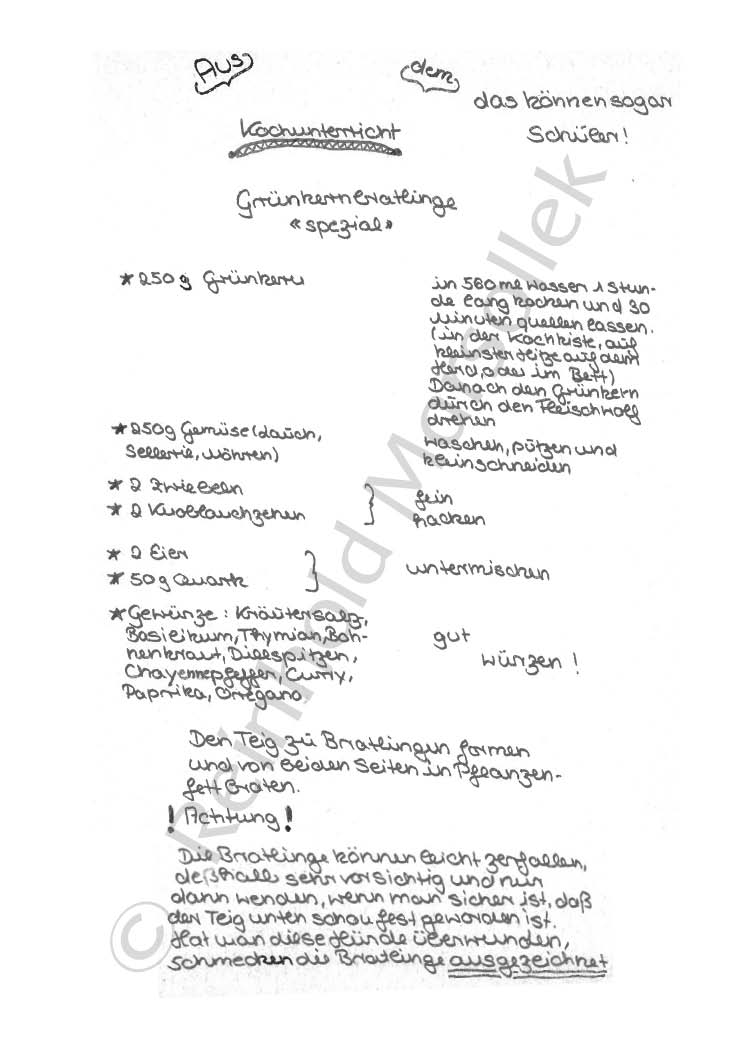 Aus dem
das können sogar
Schüler!
Kochunterricht
Grünkernbratlinge
«spezial»
* 250 g Grünkern
in 580 ml Wasser 1 Stun-
de lang kochen und 30
Minuten quellen lassen.
(in der Kochkiste, auf
kleinster Hitze auf dem
Herd, oder im Bett)
Danach den Grünkern
durch den Fleischwolf
drehen
* 250g Gemüse (Lauch,
Sellerie, Möhren)
waschen, putzen und
kleinschneiden
* 2 Zwiebeln
* 2 Knoblauchzehen
fein
hacken
* 2 Eier
* 50g Quark
untermischen
* Gewürze: Kräutersalz,
Basilikum, Thymian, Boh-
nenkraut, Dillspitzen,
Chayennepfeffer, Curry,
Paprika, Orregano
gut
würzen!
Den Teig zu Bratlingen formen
und von beiden Seiten in Pflanzen-
fett braten.
! Achtung!
Die Bratlinge können leicht zerfallen,
deßhalb sehr vorsichtig und nur
dann wenden, wenn man sicher ist, daß
der Teig unten schon fest geworden ist.
Hat man diese Hürde überwunden,
schmecken die Bratlinge ausgezeichnet
© Reinhold Marsollek